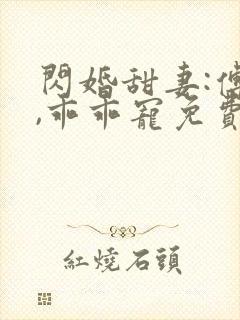 閃婚甜妻:傅
,乖乖寵免費
紅燒石頭